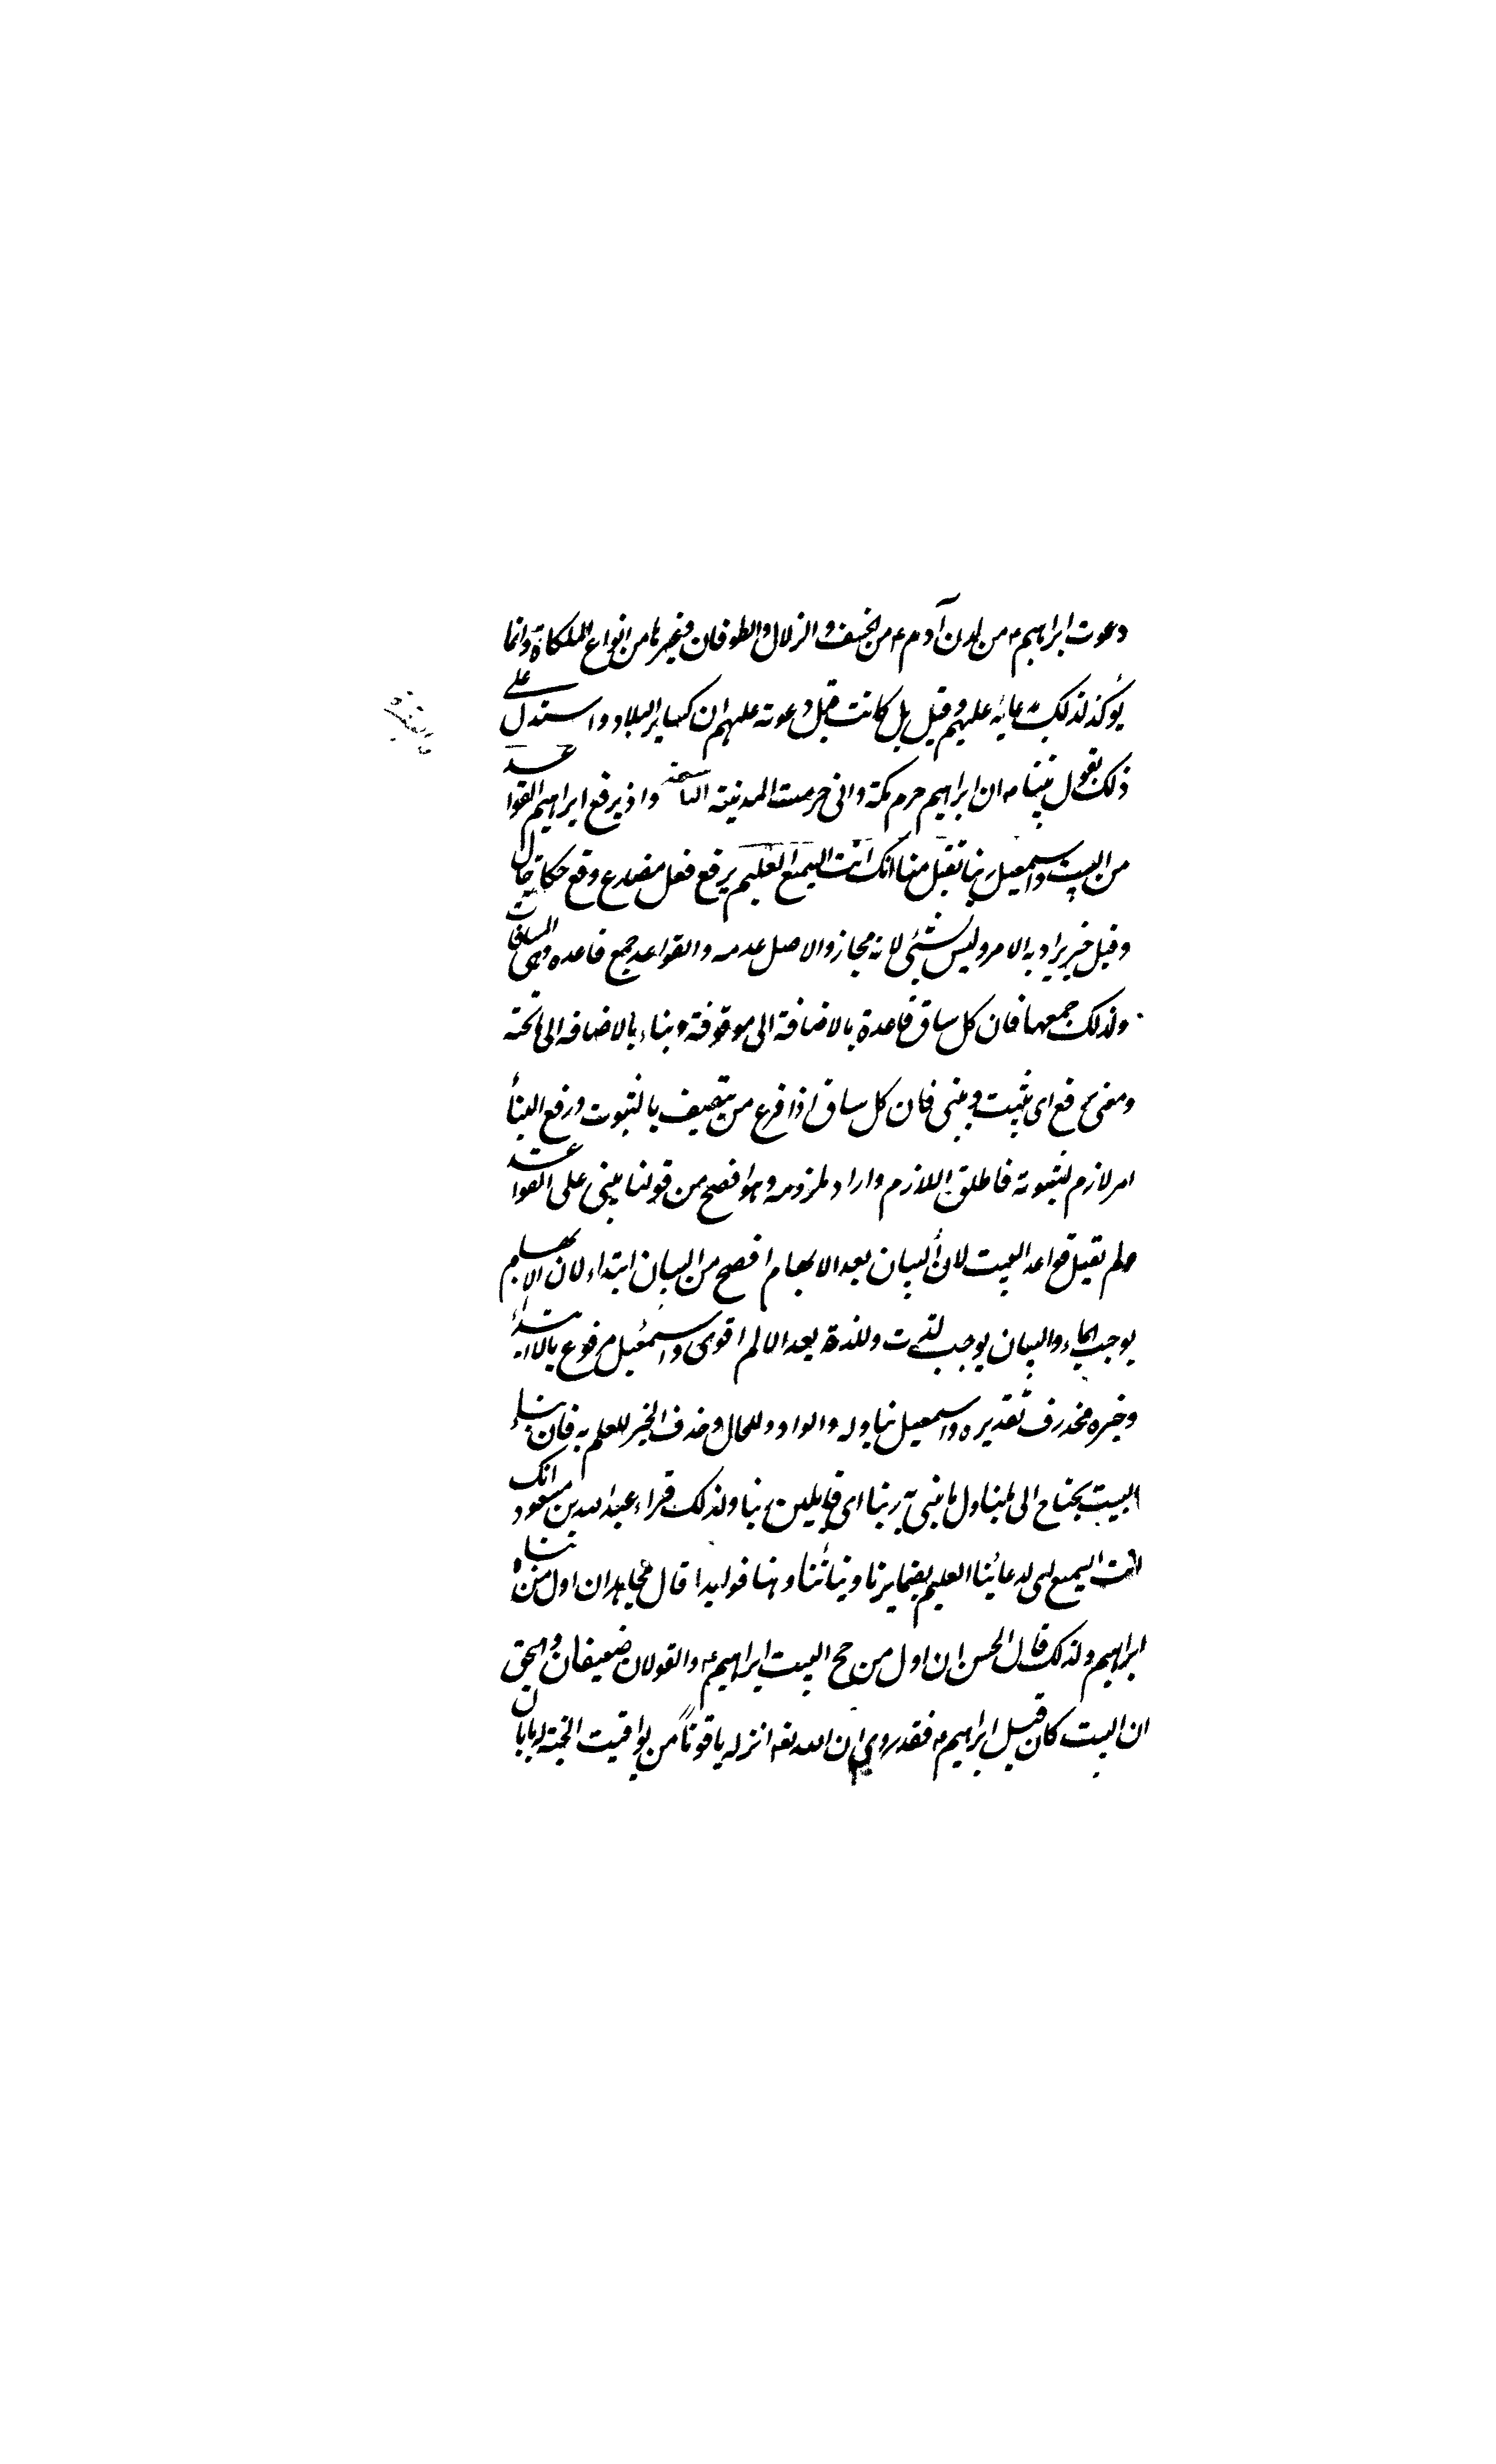 دعوت ابراهيم ع من لدن آدم ع من الخسف والزلال والطوفان وغيرها من انواع المهلكات وانما
يؤكذ لذلك دعايه عليهم وقيل بل كانت قبل دعوته عليهم ان كساير البلاد واستدل على
ذلك بقول نبينا ص ان ابراهيم حرم مكة وانى حرمت المدينة التاسعة واذ يرفع ابراهيم القواعد
من البيت واسمعيل ربنا تقبل منا انك انت السميع العليم يرفع فعل مضارع وقع حكاية حال
وقيل خبر يراد به الامر وليس بشئى لانه مجاز والاصل عدمه والقواعد جمع قاعده وهى السافات
ولذلك جمعها فان كل ساق قاعدة بالاضافة الى موقوفة وبناء بالاضافه الى تحته
ومعنى يرفع اى يثبت ويبنى فان كل ساق اذا فرغ من يتصيف بالثبوت ورفع البنأ
امر لازم لثبوته فاطلق اللازم واراد ملزومه وهو افصح من قولنا يبنى على القواعد
ولم يقيل قواعد البيت لان البيان بعد الابهام افصح من البيان ابتداء لان الابهام
يوجب والبيان يوجب لذت وللذة بعد الالم اقوى واسمعيل مرفوع بالابتداء
وخبره محذوف تقديره واسمعيل يناوله والواو وللحال وحذف الخبر للعلم به فان بناء
البيت يحتاج الى لمناول ما يبنى به ربنا اى قايلين ربنا ولذلك قراء عبد الله بن مسعود انك
انت السميع اى لدعائنا العليم بضمايرنا ونياتنا وهنا فوايد ا قال مجاهد ان اول من بناه
ابراهيم ولذلك قال الحسن ان اول من حج البيت ابراهيم ع والقولان ضعيفان والحق
ان البيت كان قبل ابراهيم ع فقد روى ان الله تعه انزله ياقوتاً من يواقيت الجنة له بابان